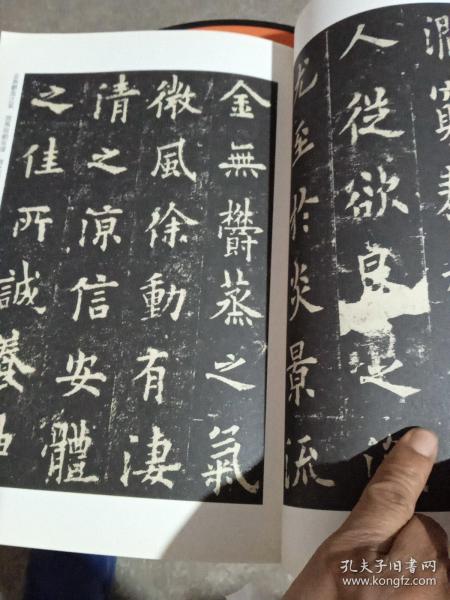 澗窮泰
人從欲良足深
尤至於炎景流
金無欝蒸之氣
微風徐動有淒
清之涼信安體
之佳所誠養神
孔夫子旧书网
www.kongfz.com